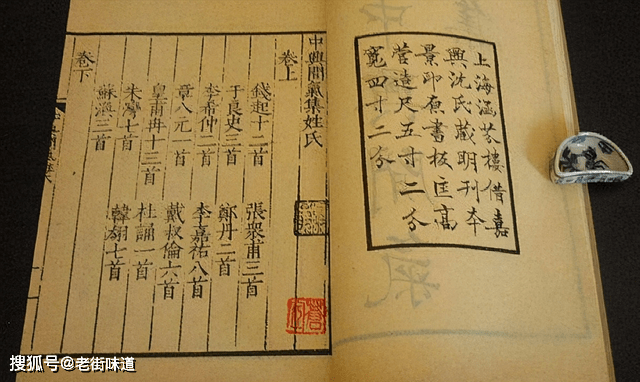 上海涵芬樓借嘉
興沈氏藏明刊本
景印原書板匡高
營造尺五寸二分
寬四寸二分
中興間氣集姓氏
卷上
錢起十二首 張衆甫三首
于良史三首 鄭丹二首
李希仲二首 李嘉祐八首
章八元一首 戴叔倫六首
皇甫冉十三首 杜誦一首
朱灣七首 韓翃七首
蘇渙三首
卷下
搜狐号@老街味道